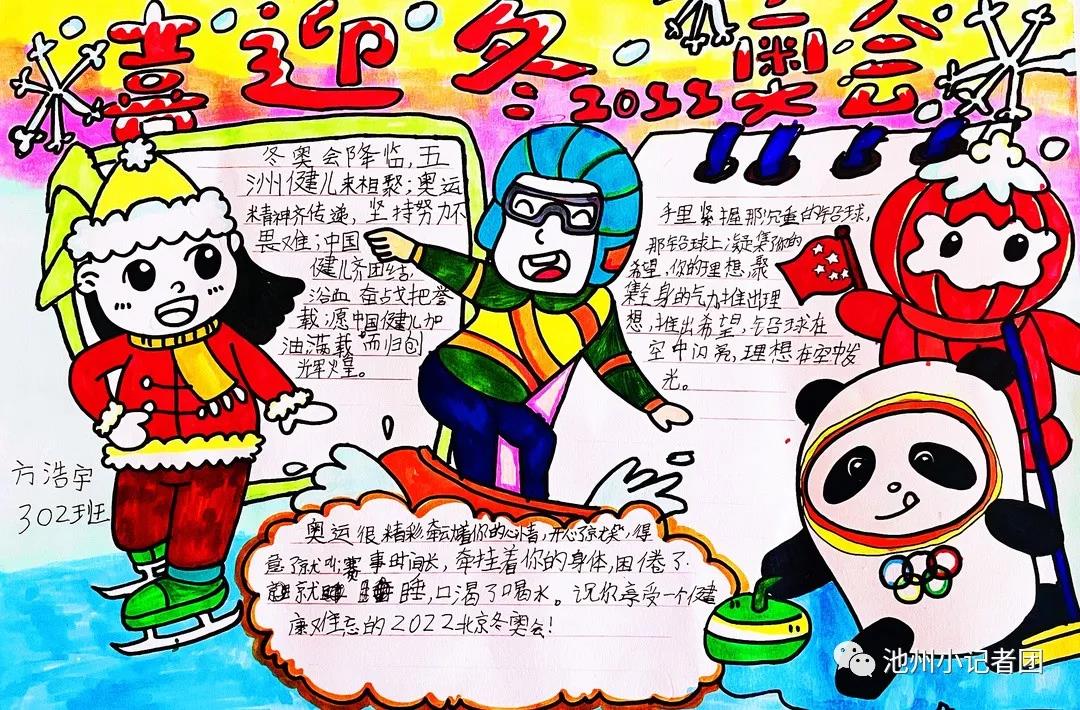 喜迎冬奥会
2022
冬奥会降临,五
洲健儿来相聚;奥运
精神齐传递,坚持努力不
畏难;中国
健儿齐团结,
浴血奋战把誉
载;愿中国健儿加
油,满载而归创
辉煌。
手里紧握那沉重的铅球,
那铅球上凝集你的
希望,你的理想,聚
集全身的气力推出理
想,推出希望,铅球在
空中闪亮,理想在空中发
光。
方浩宇
302班
奥运很精彩,牵动着你的心情,开心了就笑,
急了就叫,赛事时间长,牵挂着你的身体,困倦了
就睡,口渴了喝水。祝你享受一个健
康难忘的2022北京冬奥会!
池州小记者团